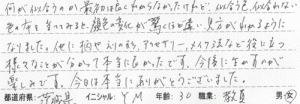 何が似合うのか最初は良くわからなかったけれど、似合う色、似合わない
色の布を当ててみると、顔色の変化が驚くほど違い、見方がわかるように
なりました。他に柄や入りのもの、アクセサリー、メイク方法など役に立つ
様々なことが伺えて本当に良かったです。今後に生かすのが
楽しみです。今日は本当にありがとうございました。
都道府県: 茨城県 イニシャル: Y M 年齢: 30 職業: 教員 男・女